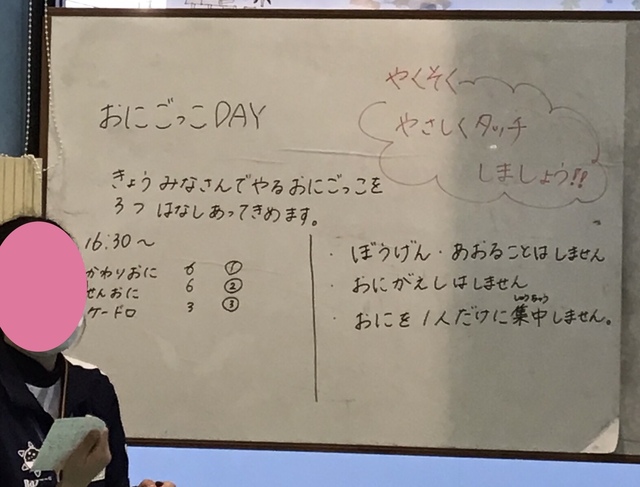 おにごっこDAY
やくそく
やさしくタッチ
しましょう!!
きょうみなさんでやるおにごっこを
3つ はなしあってきめます。
16:30～
かわりおに 6 ①
せんおに 6 ②
ケードロ 3 ③
・ぼうげん・あおることはしません
・おにがえしはしません
・おにを1人だけに集中しません。
しゅうちゅう